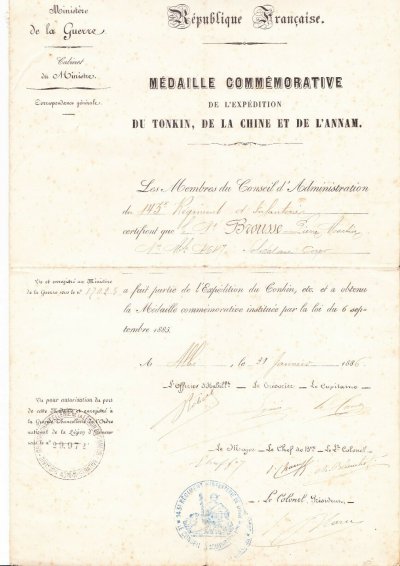 Ministère
de la Guerre.
Cabinet
du Ministre.
Correspondance générale.
République Française.
MÉDAILLE COMMÉMORATIVE
DE L'EXPÉDITION
DU TONKIN, DE LA CHINE ET DE L'ANNAM.
Les Membres du Conseil d'Administration
du 143e Régiment d'Infanterie
certifient que le Sr Brousse Pierre
Vu et enregistré au Ministère
de la Guerre sous le no
a fait partie de l'Expédition du Tonkin, etc. et a obtenu
la Médaille commémorative instituée par la loi du 6 sep-
tembre 1885.
A Albi, le 31 Janvier 1886
L'Officier d'Habillt Le Trésorier Le Capitaine
Vu pour autorisation du port
de cette Médaille et enregistré à
la Grande Chancellerie de l'Ordre
national de la Légion d'Honneur
sous le no 20.972
Le Major Le Chef de Bon Le Lt Colonel
Le Colonel, Président,